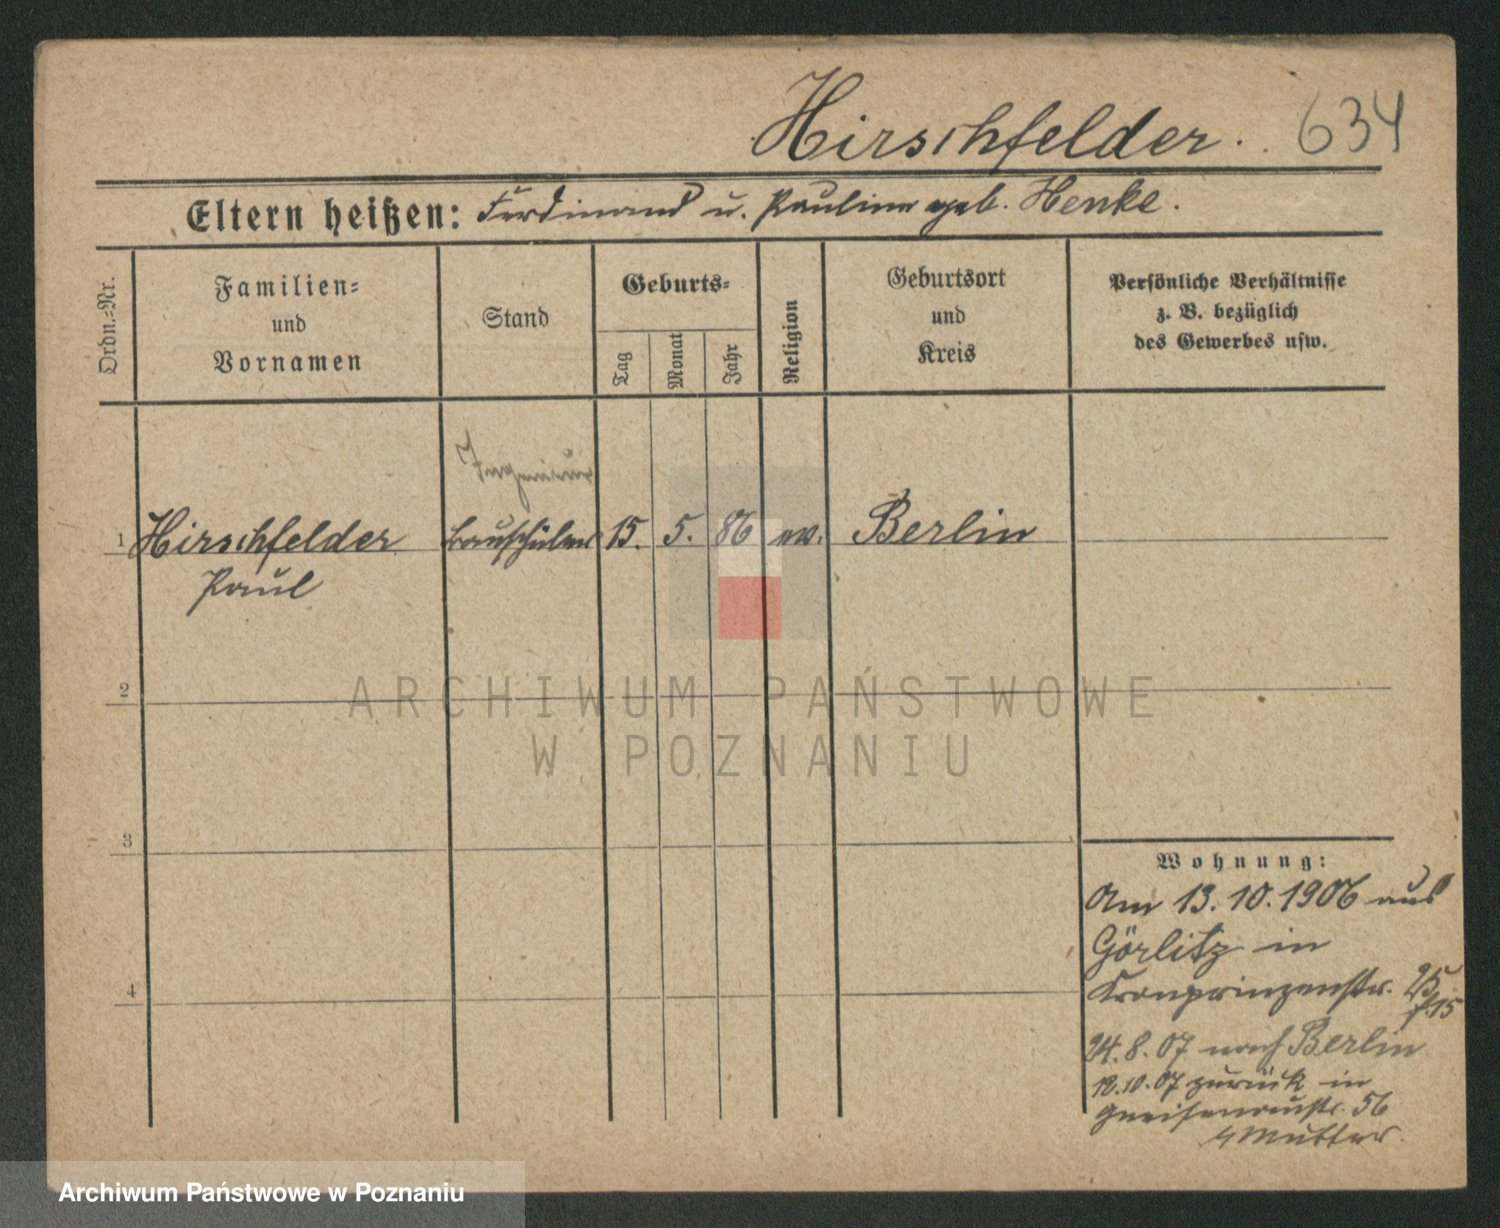 Hirschfelder. 634
Eltern heißen: Ferdinand u. Pauline geb. Henke.
Ordn.-Nr.
Familien-
und
Vornamen
Stand
Geburts-
Tag
Monat
Jahr
Religion
Geburtsort
und
Kreis
Persönliche Verhältnisse
z. B. bezüglich
des Gewerbes usw.
Ingenieur
1 Hirschfelder Bauschüler 15. 5. 86 ev. Berlin
Paul
2
ARCHIWUM PAŃSTWOWE
W POZNANIU
3
4
Wohnung:
Am 13.10.1906 aus
Görlitz in
Kronprinzenstr.
24.8.07 nach Berlin
12.10.07 zurück in
Gneisenaustr. 56
Mutter.
Archiwum Państwowe w Poznaniu